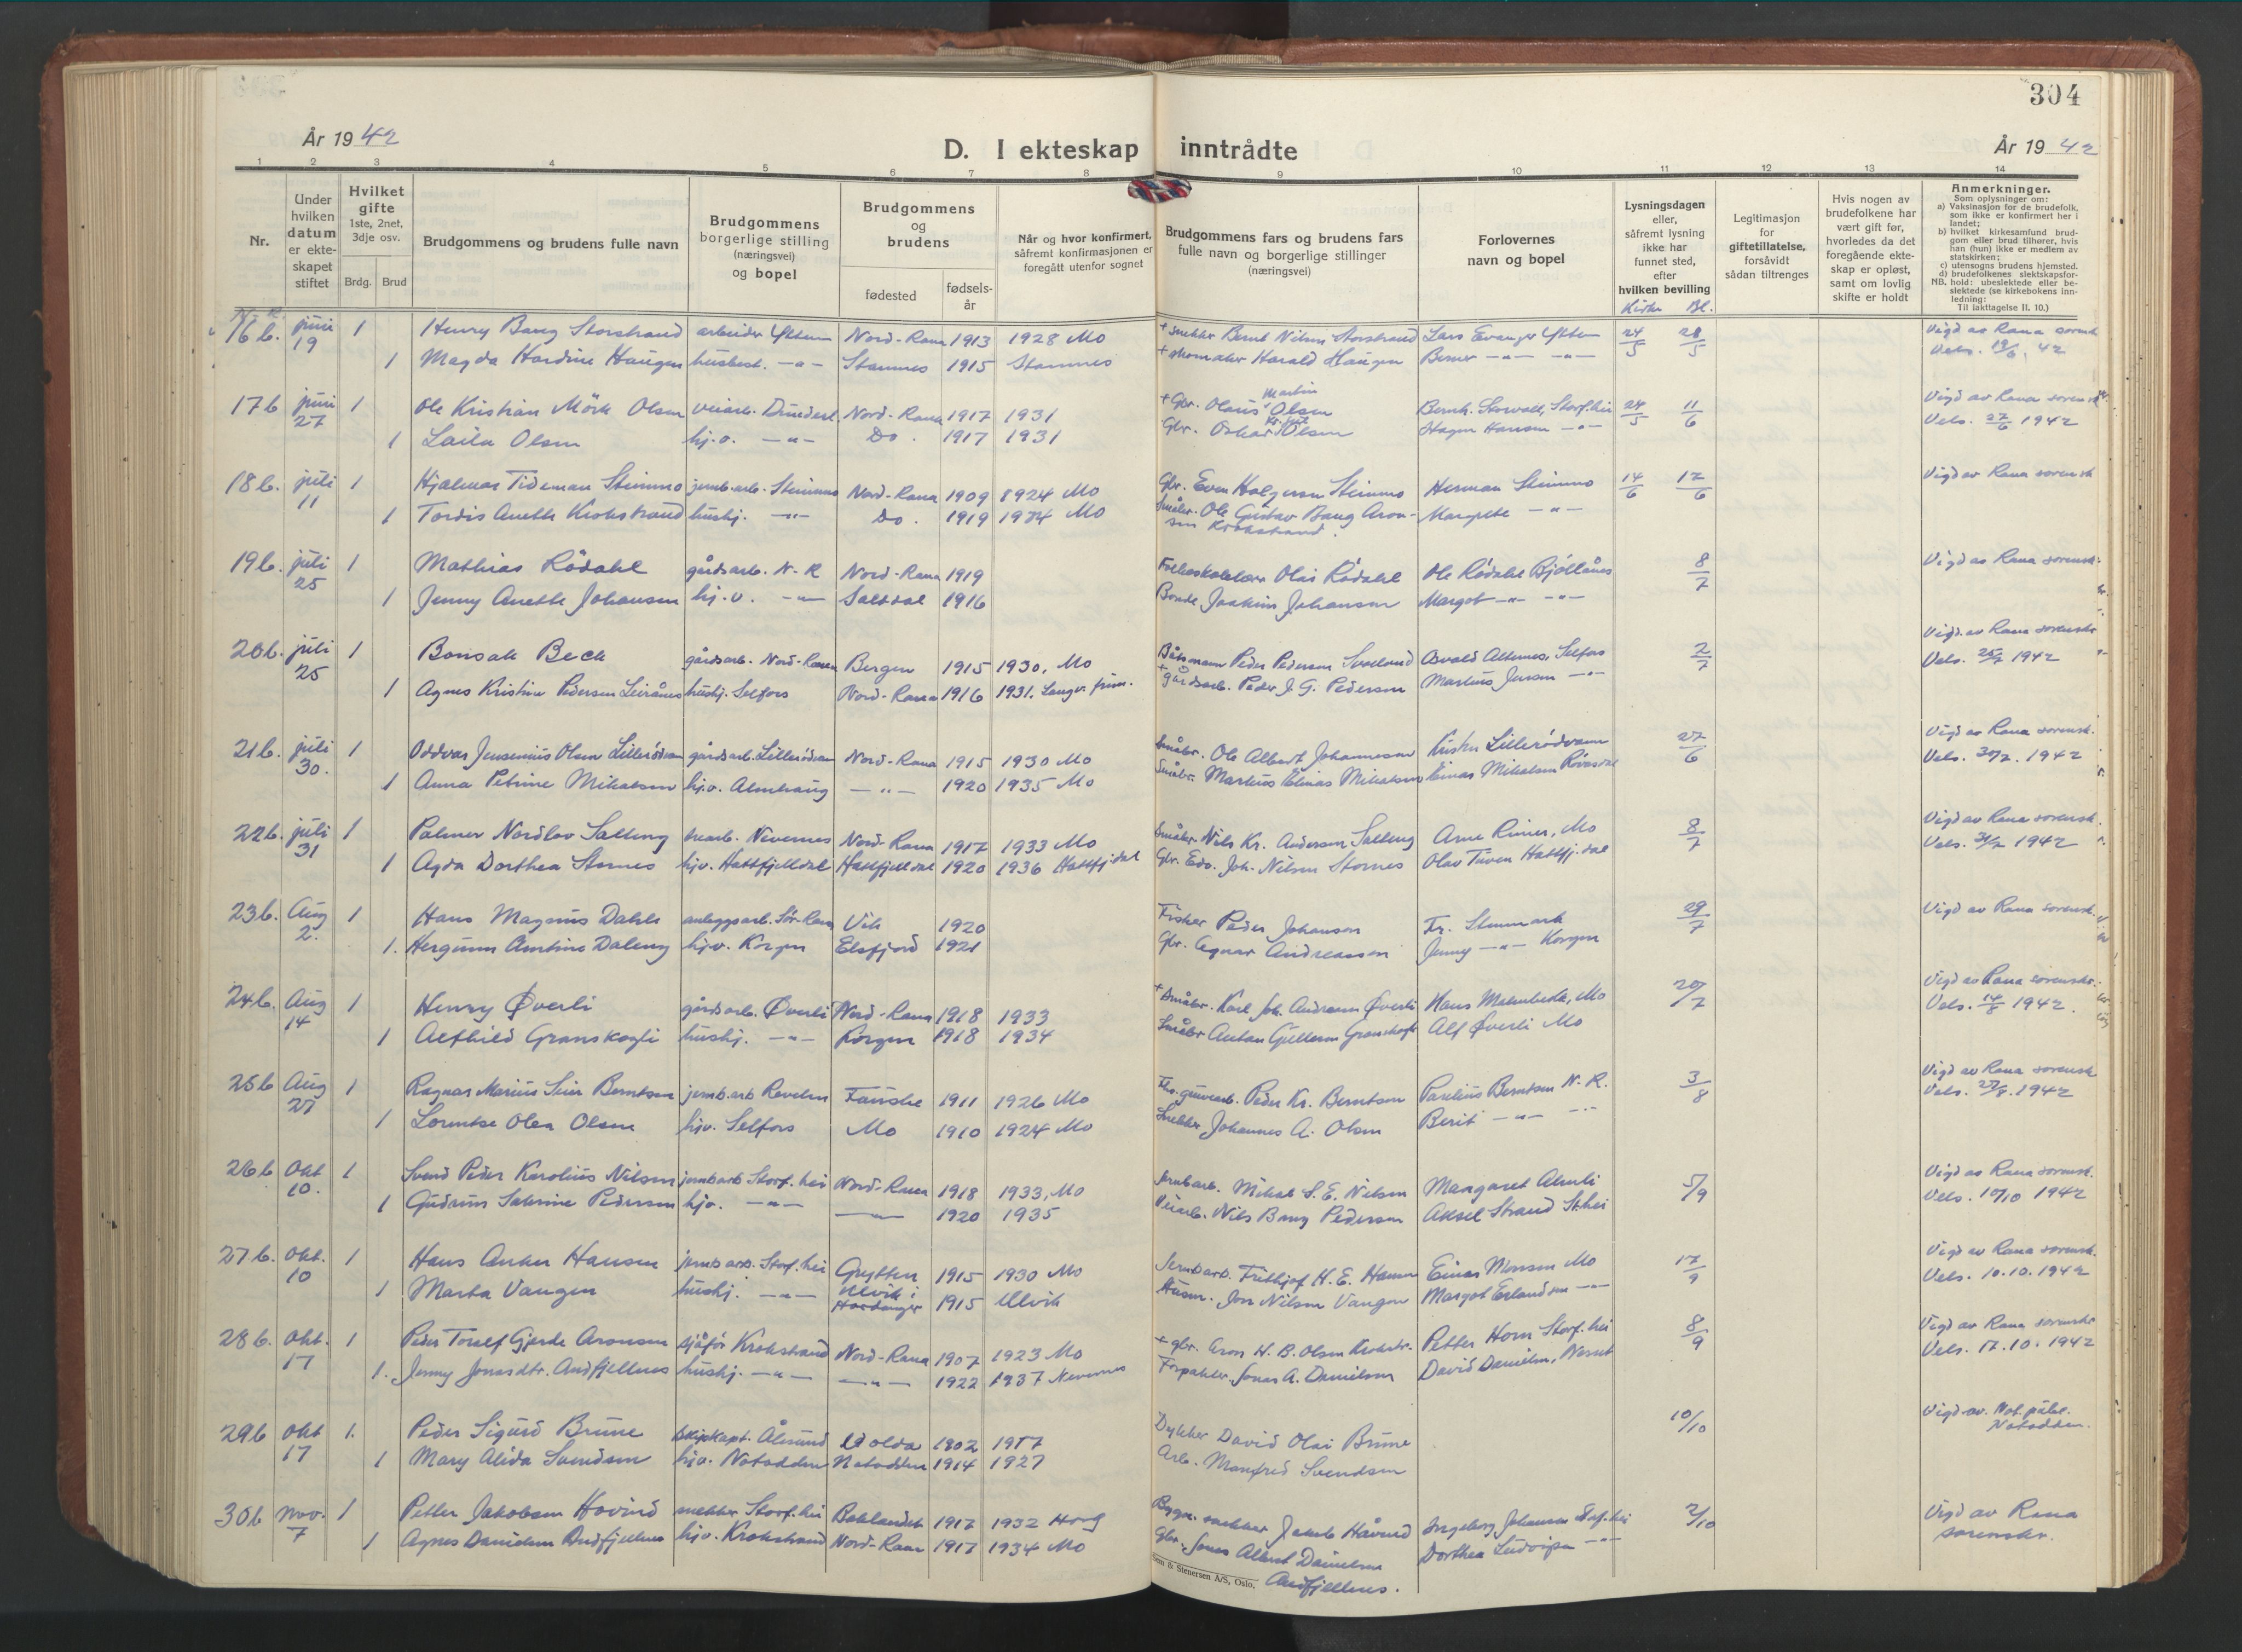 304
År 1942
D. I ekteskap inntrådte
År 1942
1 2 3 4 5 6 7 8 9 10 11 12 13 14
Nr.
Under hvilken datum er ekteskapet stiftet
Hvilket gifte
1ste, 2net, 3dje osv.
Brdg. Brud
Brudgommens og brudens fulle navn
Brudgommens borgerlige stilling (næringsvei) og bopel
Brudgommens og brudens
fødested
fødselsår
Når og hvor konfirmert, såfremt konfirmasjonen er foregått utenfor sognet
Brudgommens fars og brudens fars fulle navn og borgerlige stillinger (næringsvei)
Forlovernes navn og bopel
Lysningsdagen eller, såfremt lysning ikke har funnet sted, efter hvilken bevilling
Legitimasjon for giftetillatelse, forsåvidt sådan tiltrenges
Hvis nogen av brudefolkene har vært gift før, hvorledes da det foregående ekteskap er opløst, samt om lovlig skifte er holdt
Anmerkninger.
Som oplysninger om:
a) Vaksinasjon for de brudefolk, som ikke er konfirmert her i landet;
b) hvilket kirkesamfund brudgom eller brud tilhører, hvis han (hun) ikke er medlem av statskirken;
c) utensogns brudens hjemsted.
d) brudefolkenes slektskapsforhold: ubeslektede eller beslektede (se kirkebokens innledning:
NB. Til iakttagelse II. 10.)
Kirke Bl.
16 b. juni 19 1 Henry Bang Storstrand arbeider Ytteren Nord-Rana 1913 1928 Mo + snekker Bernt Nilsen Storstrand Lars Evenger Ytteren 24/5 28/5 Vigd av Rana sorensk
1 Magda Hardine Haugen husbest. -"- Stamnes 1915 Stamnes + skomaker Harald Haugen Berner -"- -"- Vels. 19/6. 42
17 b juni 27 1 Ole Kristian Mörk Olsen veiarb. Dunderl. Nord-Rana 1917 1931 + Gbr. Olaus Martin Olsen Bernh. Storvoll, Storf.hei 24/5 11/6 Vigd av Rana sorensk
1 Laila Olsen hj.v. -"- Do. 1917 1931 Gbr. Oskar Olsen Hagen Hansen -"- Vels. 27/6 1942
18 b. juli 11 1 Hjalmar Tideman Steinmo jernb.arb. Steinmo Nord-Rana 1909 1924 Mo Gbr. Even Holgersen Steinmo Herman Steinmo 14/6 17/6 Vigd av Rana sorensk
1 Tordis Anette Krokstrand hushj. -"- Do. 1919 1934 Mo Småbr. Ole Gustav Bang Aronsen Krokstrand. Margrete -"-
19 b. juli 25 1 Mathias Rödahl gårdsarb. N-R Nord-Rana 1919 Folkeskolelærer Olai Rödahl Ole Rödahl Bjöllånes 8/7 Vigd av Rana sorensk.
1 Jenny Anette Johansen hj.v. -"- Saltdal 1916 Bonde Joakim Johansen Margot -"- -"-
20 b. juli 25 1 Bonsak Beck gårdsarb. Nord-Rana Bergen 1915 1930, Mo Båtsmann Peder Pedersen Svaeland Osvald Alternes, Selfors 2/7 Vigd. av Rana sorenskr
1 Agnes Kristine Pedersen Leirånes hushj. Selfors Nord-Rana 1916 1931. Langv. + gårdsarb. Peder J. G. Pedersen Martius Jensen -"- Vels. 25/7 1942
21 b. juli 30. 1 Oddvar Jensenius Olsen Lillerödvann gårdsarb. Lillerödvan Nord-Rana 1915 1930 Mo Småbr. Ole Albert Johannesen Kristen Lillerödvann 27/6 Vigd av Rana sorensk.
1 Anna Petrine Mikalsen hj.v. Almhaug -"- 1920 1935 Mo Småbr. Markus Elinas Mikalsen Einar Mikalsen Rövasdal Vels. 30/7. 1942
22 b. juli 31 1 Palmer Nordlov Salteng Nevernes Nord-Rana 1917 1933 Mo Småbr. Nils Kr. Andersen Salteng Arne Rimer, Mo 8/7 Vigd av Rana sorensk.
1 Agda Dorthea Stornes hjv. Hattfjelldal Hattfjelldal 1920 1936 Hattfj.dal Gbr. Edv. Joh. Nilsen Stornes Olav Tuven Hattfj.dal Vels. 31/7 1942
23 b. Aug 2. 1 Hans Magnus Dahle anleggsarb. Sør-Rana Vik 1920 Fisker Peder Johansen Fr. Stenmark 29/7 Vigd av Rana sorensk.
1. Hergunn Amtine Daleng hjv. Korgen Elsfjord 1921 Gbr. Agnar Andreassen Jenny -"- Korgen
24 b. Aug 14 1 Henry Øverli gårdsarb. Øverli Nord-Rana 1918 1933 + Småbr. Karl Joh. Andreasen Øverli Hans Malmbekk, Mo 20/7 Vigd av Rana sorenskr.
1 Alfhild Granskogli hushj. -"- Korgen 1918 1934 Småbr Anton Gullesen Alf Øverli Mo Vels. 14/8 1942.
25 b Aug 27 1 Ragnar Marius Seier Berntsen jernb.arb Revelen Fauske 1911 1926 Mo Peder Kr. Berntsen Parelius Berntsen N. R. 3/8 Vigd av Rana sorensk
1 Lorentse Olea Olsen hjv. Selfors Mo 1910 1924 Mo Snekker Johannes A. Olsen Berit -"- -"- Vels. 27/8. 1942
26 b Okt 10. 1 Svend Peder Karolius Nilsen jernb.arb Storf.hei Nord-Rana 1918 1933, Mo Jernb.arb. Mikal S. E. Nilsen Margaret Almli 5/9 Vigd av Rana sorensk.
1 Gudrun Sabrine Pedersen hjv. -"- -"- 1920 1935 Veiarb. Nils Bang Pedersen Aksel Strand St.hei Vels. 10/10 1942
27 b. Okt. 10 1 Hans Anker Hansen jernb.arb. Storf.hei Grytten 1915 1930 Mo Jernb.arb. Frithjof H. E. Hansen Einar Monsen Mo 17/9 Vigd av Rana sorensk.
1 Marta Vangen hushj. -"- Ulvik i Hardanger 1915 Ulvik Husm. Jon Nilsen Vangen Margot Erlandsen -"- Vels. 10.10.1942
28 b. Okt. 17 1 Peder Toralf Gjerde Aronsen sjåför Krokstrand Nord-Rana 1907 1923 Mo + gbr. Aron H. B. Olsen Krokstr. Petter Horn Storf.hei 8/9 Vigd av Rana sorenskr
1. Jenny Jonasdtr. Andfjellnes hushj. -"- -"- 1922 1937 Nevernes Forpakter. Jonas A. Danielsen David Danielsen, Nernst Vels. 17.10.1942
29 b Okt 17 1. Peder Sigurd Brune skipskapt. Ålesund Volda 1902 1917 Dykker David Olai Brune 10/10 Vigd av. Not.publ. Notodden.
1 Mary Alida Svendsen hjv. Notodden Notodden 1914 1927 Arb. Manfred Svendsen
30 b Nov. 7 1 Petter Jakobsen Hovind snekker Storf.hei Baklandet 1917 1932 Bygn. snekker Jakob Håvind Ingeborg Johansen Storf.hei 2/10 Vigd av Rana sorenskr.
1 Agnes Danielsen Andfjellnes hjv. Krokstrand Nord-Rana 1917 1934 Mo Gbr. Jonas Albert Danielsen Andfjellnes. Dorthea Ludvigsen -"-
Sem & Stenersen A/S, Oslo.